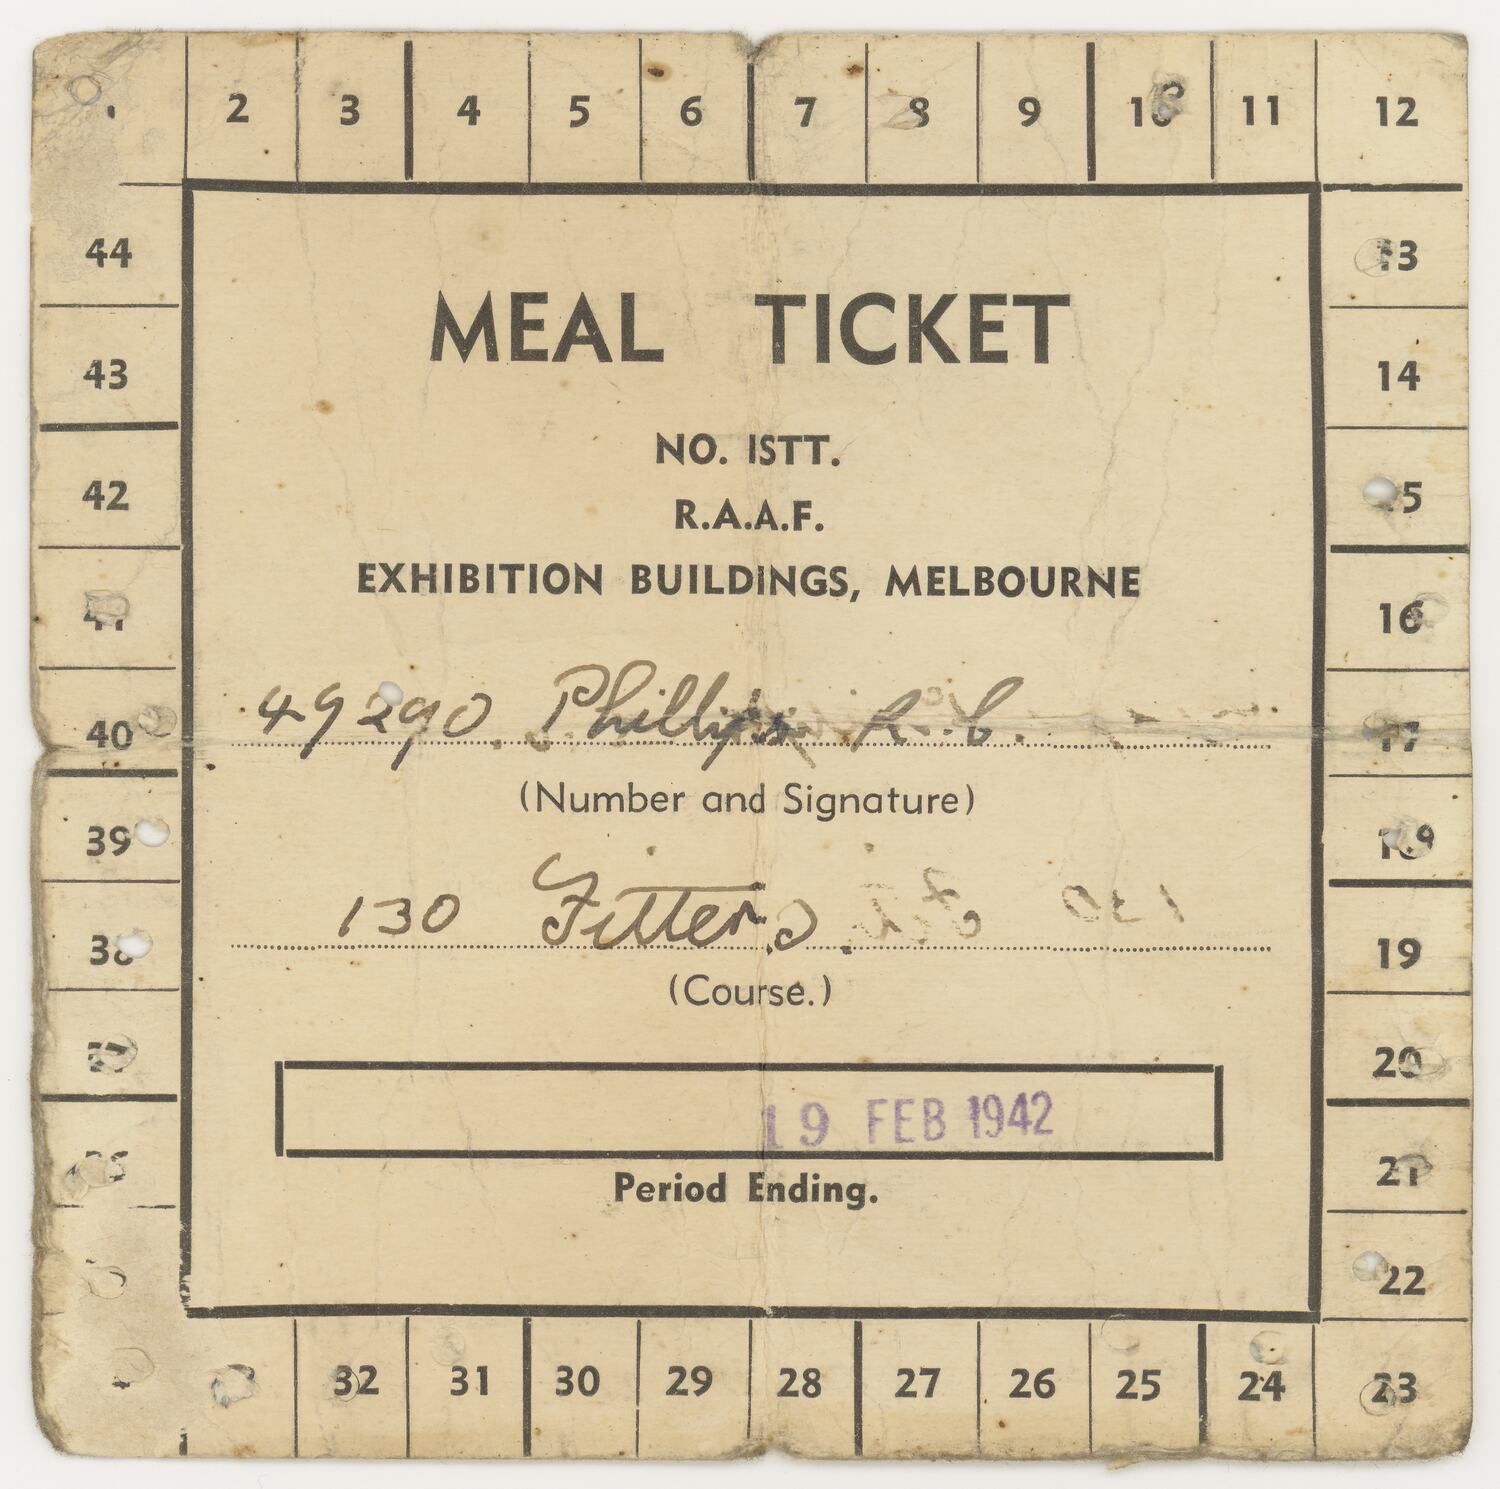 2 3 4 5 6 7 8 9 10 11 12
44 13
43 14
42 15
41 16
40 17
39 18
38 19
37 20
36 21
22
33 32 31 30 29 28 27 26 25 24 23
MEAL TICKET
NO. ISTT.
R.A.A.F.
EXHIBITION BUILDINGS, MELBOURNE
49290. Phillips R.C.
(Number and Signature)
130 Fitters.
(Course.)
19 FEB 1942
Period Ending.